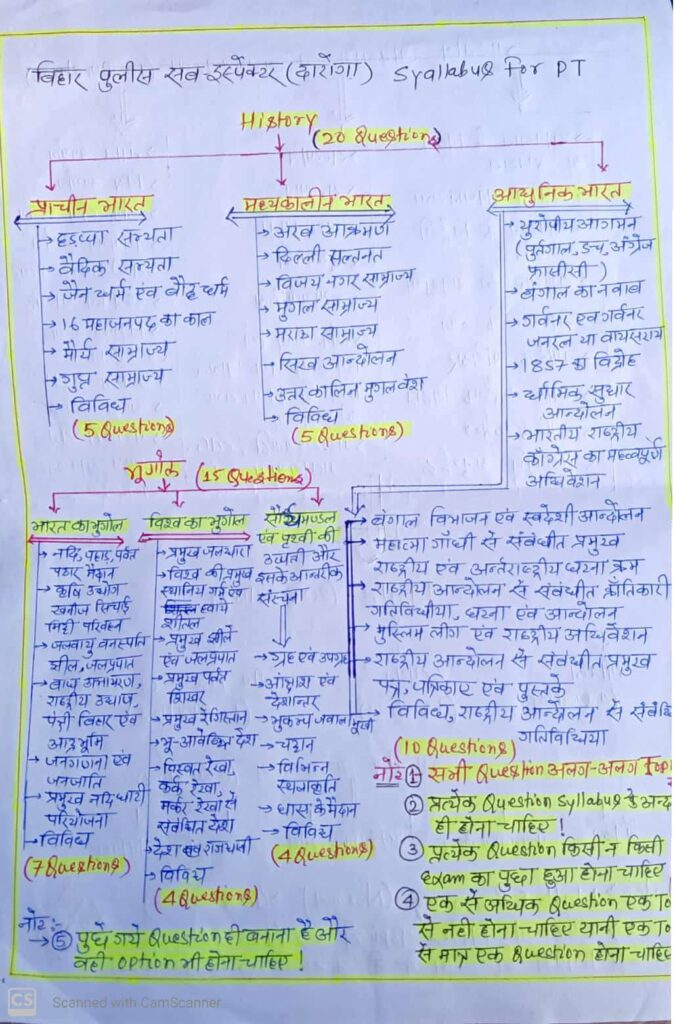 बिहार पुलीस सब-इंस्पेक्टर (दारोगा) Syallabus For PT
History
(20 Questions)
प्राचीन भारत
→ हडप्पा सभ्यता
→ वैदिक सभ्यता
→ जैन धर्म एंव बौद्ध धर्म
→ 16 महाजनपद का काल
→ मौर्य साम्राज्य
→ गुप्त साम्राज्य
→ विविध
(5 Questions)
मध्यकालीन भारत
→ अरब आक्रमण
→ दिल्ली सल्तनत
→ विजय नगर साम्राज्य
→ मुगल साम्राज्य
→ मराठा साम्राज्य
→ सिख आन्दोलन
→ उत्तर कालिन मुगल वंश
→ विविध
(5 Questions)
आधुनिक भारत
→ युरोपीय आगमन
(पुर्तगाल, डच, अंग्रेज
फ्रांसीसी)
→ बंगाल का नवाब
→ गर्वनर एंव गर्वनर
जनरल या वायसराय
→ 1857 का विद्रोह
→ धार्मिक सुधार
आन्दोलन
→ भारतीय राष्ट्रीय
काँग्रेस का महत्वपुर्ण
अधिवेशन
→ बंगाल विभाजन एंव स्वदेशी आन्दोलन
→ महात्मा गाँधी से संबंधीत प्रमुख
राष्ट्रीय एंव अर्न्तराष्ट्रीय घटना क्रम
→ राष्ट्रीय आन्दोलन से संबंधीत क्राँतिकारी
गतिविधीया, घटना एंव आन्दोलन
→ मुस्लिम लीग एंव राष्ट्रीय अधिवेशन
→ राष्ट्रीय आन्दोलन से संबंधीत प्रमुख
पत्र, पत्रिकाए एंव पुस्तके
→ विविध, राष्ट्रीय आन्दोलन से संबंधि
गतिविधिया
(10 Questions)
भूगोल (15 Questions)
भारत का भुगोल
→ नदि, पहाड, पर्वत
पठार मैदान
→ कृषि उद्योग
खनीज सिचाई
मिट्टी परिवहन
→ जलवायु वनस्पति
झील, जलप्रपात
→ बाघ अभ्यारण,
राष्ट्रीय उद्यान,
पंक्षी विहार एंव
आद्रभूमि
→ जनगणना एंव
जनजाति
→ प्रमुख नदि घाटी
परियोजना
→ विविध
(7 Questions)
विश्व का भुगोल
→ प्रमुख जलधारा
→ विश्व की प्रमुख
स्थानिय गर्म एंव
हवाये
शीतल
→ प्रमुख झीले
एंव जलप्रपात
→ प्रमुख पर्वत
शिखर
→ प्रमुख रेगिस्तान
→ भू-आवेष्ठित देश
→ विस्वत रेखा,
कर्क रेखा,
मकर रेखा से
संबंधित देश
→ देश एंव राजधानी
→ विविध
(4 Questions)
सौर्यमण्डल
एंव पृथ्वी की
उत्पत्ती और
इसके आन्तरीक
संरचना
→ ग्रह एंव उपग्रह
→ अंक्षाश एंव
देशान्तर
→ भुकम्प ज्वालामुखी
→ चट्टान
→ विभिन्न
स्थलाकृति
→ घास के मैदान
→ विविध
(4 Questions)
नोट: ① सभी Question अलग-अलग Topi
② प्रत्येक Question Syllabus के अन्द
ही होना चाहिए !
③ प्रत्येक Question किसी न किसी
exam का पुछा हुआ होना चाहिए
④ एक से अधिक Question एक To
से नही होना चाहिए यानी एक To
से मात्र एक Question होना चाहिए
नोट:-
→ ⑤ पुछे गये Question ही बनाना है और
वही option भी होना चाहिए !
CS Scanned with CamScanner